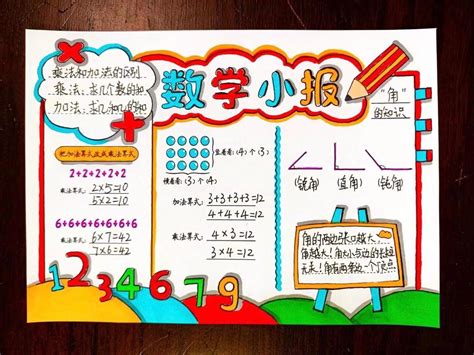 数学小报
乘法和加法的区别
乘法：求几个数的和
加法：求几和几的和
把加法算式改成乘法算式
2+2+2+2+2
乘法算式: 2×5=10
5×2=10
6+6+6+6+6+6+6
乘法算式: 6×7=42
7×6=42
竖着看:(4)个(3)
横着看:(3)个(4)
加法算式: 3+3+3+3=12
4+4+4=12
乘法算式: 4×3=12
3×4=12
“角”
的知识
(锐角) (直角) (钝角)
角的两边张口越大，
角越大！角大小与边的长短
无关！角有两条边一个顶点
1 2 3 4 6 7 9